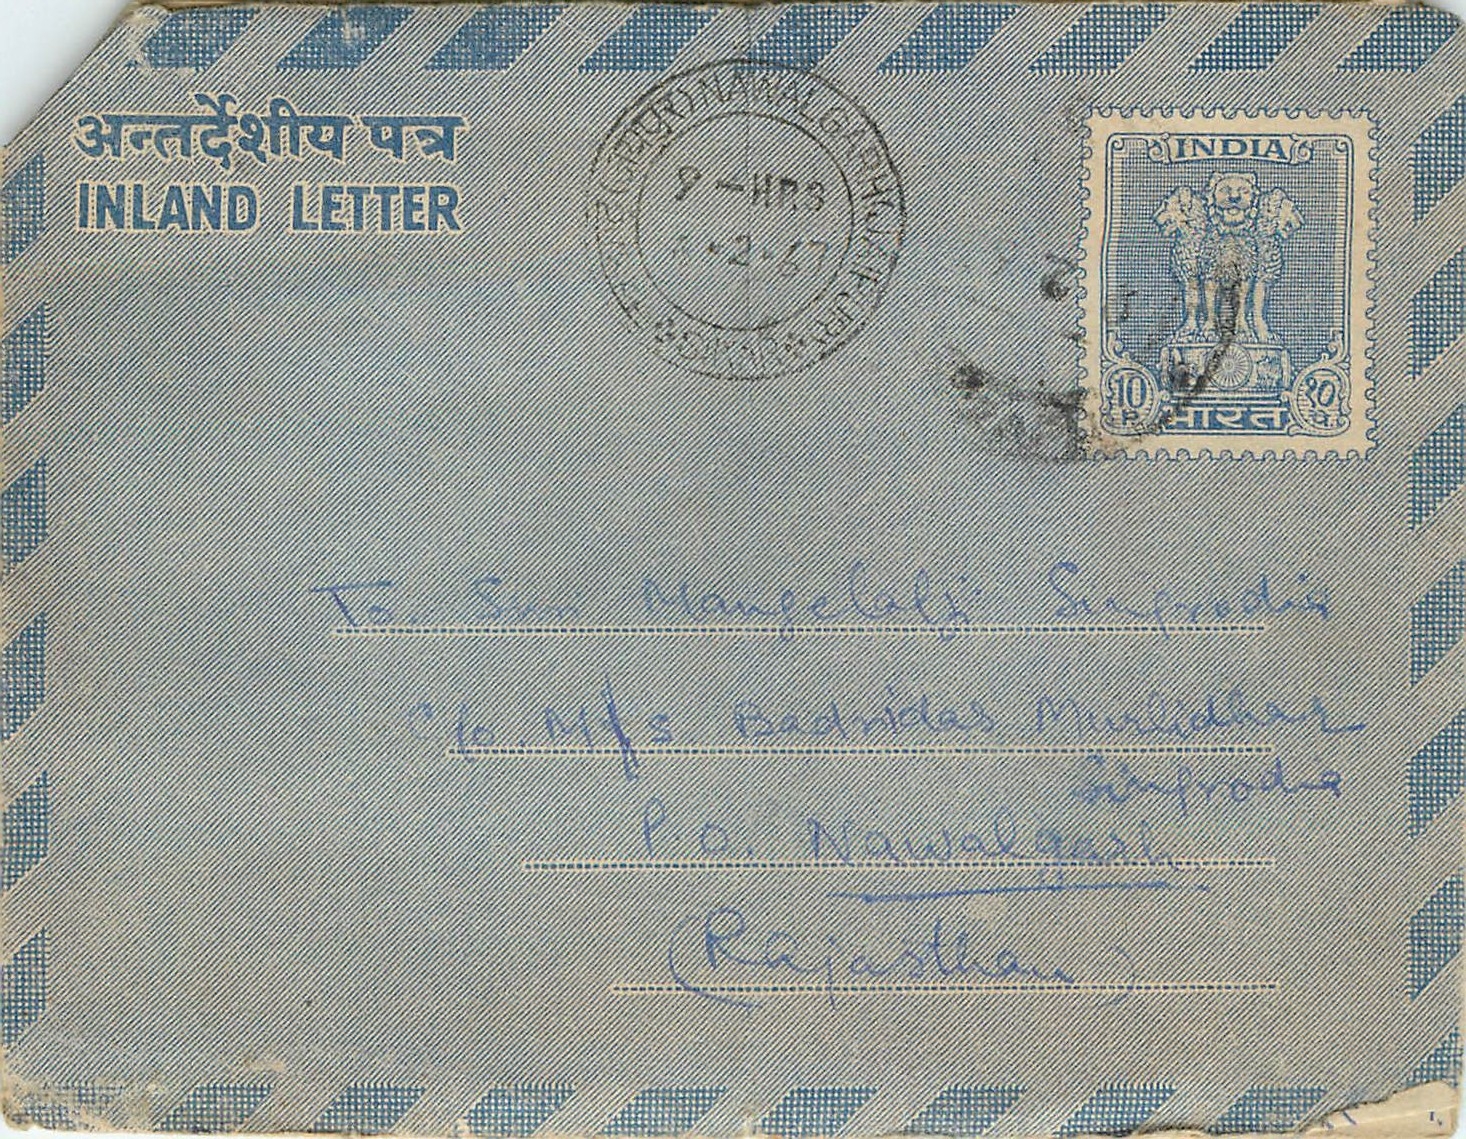 अन्तर्देशीय पत्र
INLAND LETTER
(जयपुर) NAWALGARH (JAIPUR)
9-HRS
2.67
INDIA
10 P. भारत १० पै.
To. Sri Mangelalji
C/o. M/s Badridas Murlidhar
P.O. Nawalgarh.
(Rajasthan)